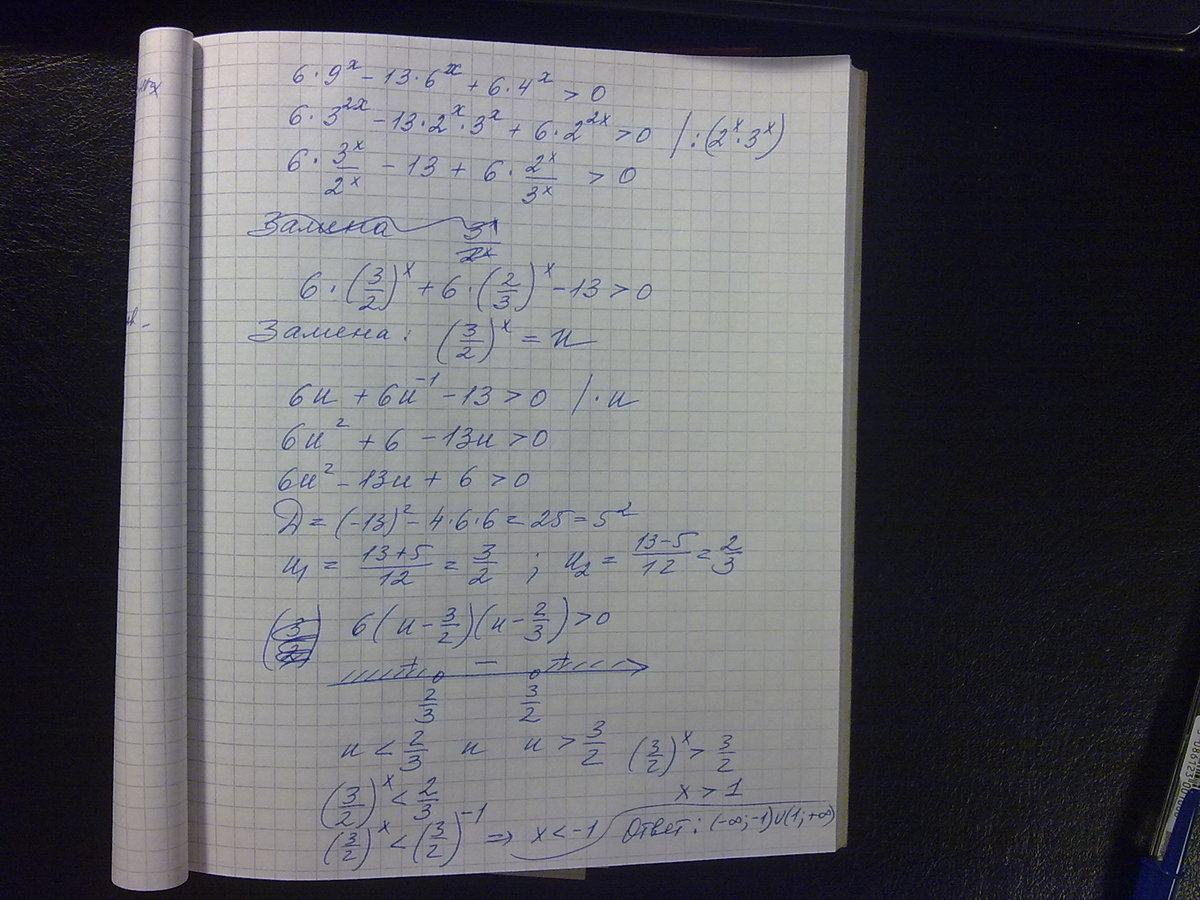 6·9^x − 13·6^x + 6·4^x > 0
6·3^{2x} − 13·2^x·3^x + 6·2^{2x} > 0 /:(2^x·3^x)
6·\frac{3^x}{2^x} − 13 + 6·\frac{2^x}{3^x} > 0
Замена \frac{3^x}{2^x}
6·(\frac{3}{2})^x + 6·(\frac{2}{3})^x − 13 > 0
Замена: (\frac{3}{2})^x = u
6u + 6u^{-1} − 13 > 0 /·u
6u^2 + 6 − 13u > 0
6u^2 − 13u + 6 > 0
Д = (−13)^2 − 4·6·6 = 25 = 5^2
u_1 = \frac{13+5}{12} = \frac{3}{2} ; u_2 = \frac{13−5}{12} = \frac{2}{3}
(\frac{3}{2}) 6(u − \frac{3}{2})(u − \frac{2}{3}) > 0
+ − +
\frac{2}{3} \frac{3}{2}
u < \frac{2}{3} и u > \frac{3}{2} (\frac{3}{2})^x > \frac{3}{2}
(\frac{3}{2})^x < \frac{2}{3} x > 1
(\frac{3}{2})^x < (\frac{3}{2})^{-1} ⇒ x < −1 Ответ: (−∞;−1)∪(1;+∞)